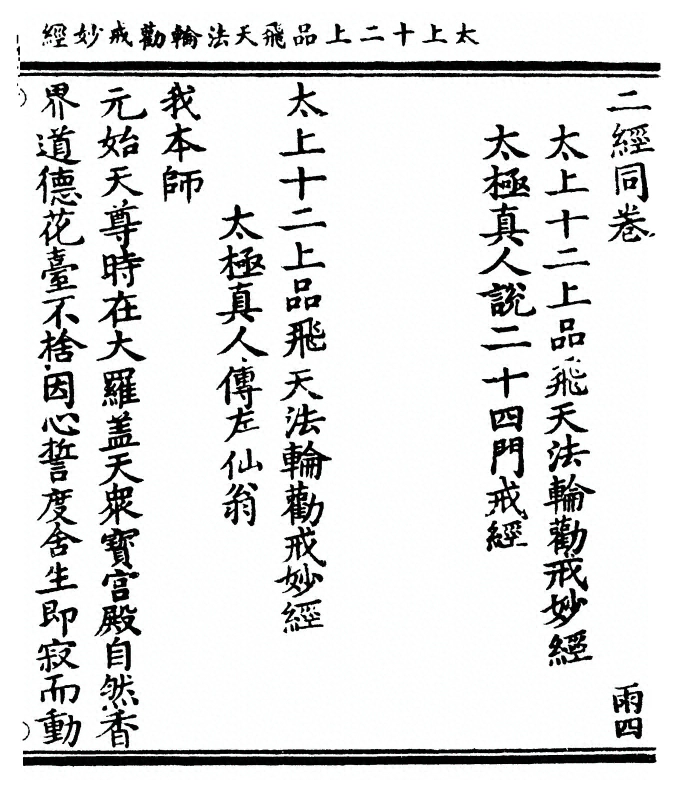 太上十二上品飛天法輪勸戒妙經
二經同卷
雨四
太上十二上品飛天法輪勸戒妙經
太極真人說二十四門戒經
太上十二上品飛天法輪勸戒妙經
太極真人傳左仙翁
我本師
元始天尊時在大羅蓋天眾寶宮殿自然香
界道德花臺不捨因心誓度含生即寂而動